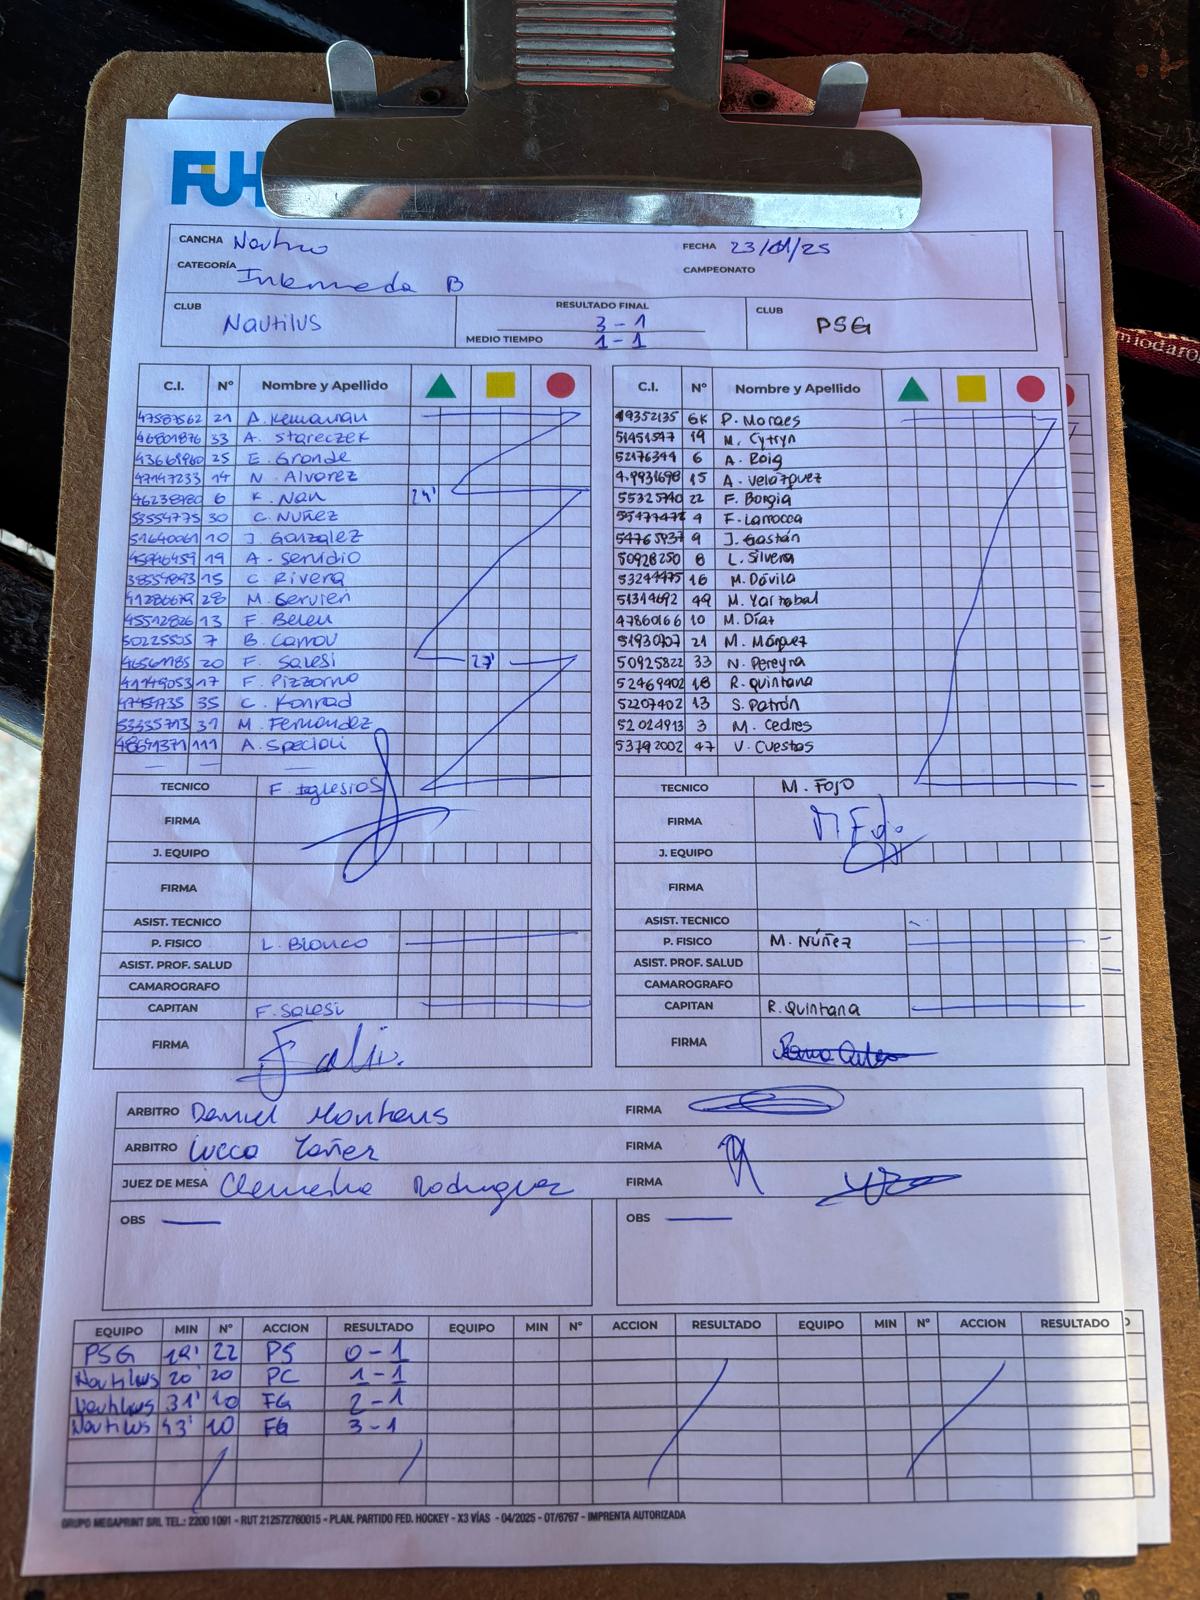 FUH
CANCHA Nautico FECHA 23/01/25
CATEGORÍA Intermedia B CAMPEONATO
CLUB Nautilus RESULTADO FINAL 3-1 CLUB PSG
MEDIO TIEMPO 1-1
C.I. Nº Nombre y Apellido C.I. Nº Nombre y Apellido
21 A. 6K P. Moraes
33 A. Stareczek 19 M. Cytryn
25 E. Grande 52176344 6 A. Roig
47147233 14 N. Alvarez 15 A. Velázquez
46238980 6 K. Nan 24' 22 F. Borgia
53554775 30 C. Nuñez 4 F. Larrocca
51640061 10 J. González 54765937 9 J. Gastán
19 A. Servidio 50928250 8 L. Silvera
15 C. Rivera 16 M. Dávila
28 M. Gervien 51314692 49 M. Yarrabal
45512826 13 F. Beleu 47860166 10 M. Díaz
50225505 7 B. 51930707 21 M. Márquez
20 F. Salesi 27' 50925822 33 N. Pereyra
17 F. Pizzorno 52469402 18 R. Quintana
35 C. Konrad 52207402 13 S. Patrón
31 M. Fernandez 52024913 3 M. Cedres
48641371 111 A. Specioli 53792002 47 V. Cuestas
TECNICO F. Iglesias TECNICO M. Fojo
FIRMA FIRMA M Fojo
J. EQUIPO J. EQUIPO
FIRMA FIRMA
ASIST. TECNICO ASIST. TECNICO
P. FISICO L. Blanco P. FISICO M. Núñez
ASIST. PROF. SALUD ASIST. PROF. SALUD
CAMAROGRAFO CAMAROGRAFO
CAPITAN F. Salesi CAPITAN R. Quintana
FIRMA FIRMA
ARBITRO Daniel FIRMA
ARBITRO Lucca Yañez FIRMA
JUEZ DE MESA Clementina Rodriguez FIRMA
OBS — OBS —
EQUIPO MIN Nº ACCION RESULTADO EQUIPO MIN Nº ACCION RESULTADO EQUIPO MIN Nº ACCION RESULTADO
PSG 22 PS 0-1
Nautilus 20' 20 PC 1-1
Nautilus 31' 10 FG 2-1
Nautilus 43' 10 FG 3-1
GRUPO MEGAPRINT SRL TEL.: 2200 1091 - RUT 212572760015 - PLAN. PARTIDO FED. HOCKEY - X3 VÍAS - 04/2025 - OT/6767 - IMPRENTA AUTORIZADA
miodaro